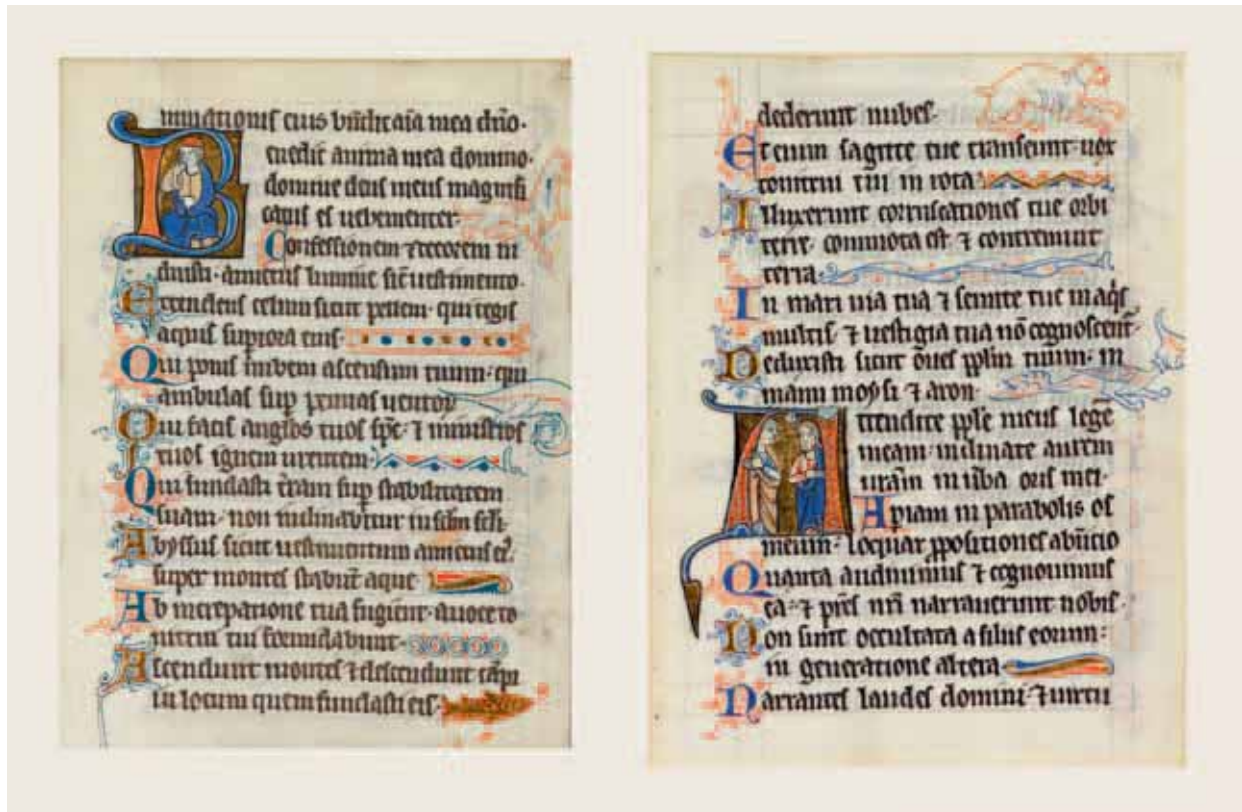 minationis eius bn̄dic aīa mea dn̄o·
Benedic anima mea domino·
domine deus meus magnifi
catus es uehementer·
Confessionem ⁊ decorem in
duisti· amictus lumine sic̄ uestimento·
Extendens celum sicut pellem· qui tegis
aquis superiora eius·
Qui ponis nubem ascensum tuum· qui
ambulas sup̄ pennas uentoꝝ
Qui facis angl̄os tuos sp̄c· ⁊ ministros
tuos ignem urentem·
Qui fundasti t̄ram sup̄ stabilitatem
suam· non inclinabitur in sc̄lm sc̄li·
Abyssus sicut uestimentum amictus eꝰ·
super montes stabūt aque·
Ab increpatione tua fugient· a uoce to
nitrui tui formidabunt·
Ascendunt montes ⁊ descendunt cāpi
in locum quem fundasti eis·
dederunt nubes·
Etenim sagitte tue transeunt· uox
tonitrui tui in rota·
Illuxerunt coruscationes tue orbi
terre· commota est ⁊ contremuit
terra
In mari uia tua ⁊ semite tue in aqis
multis· ⁊ uestigia tua nō cognoscent̄·
Deduxisti sicut oues pplm̄ tuum· in
manu moysi ⁊ aaron·
Attendite pple meus legē
meam· inclinate aurem
uram̄ in u̅ba oris mei·
Apiam in parabolis os
meum· loquar ppositiones ab inicio
Quanta audiuimus ⁊ cognouimus
ea· ⁊ pr̄es nr̄i narrauerunt nobis·
Non sunt occultata a filiis eorum·
in generatione altera
Narrantes laudes domini· ⁊ uirtu